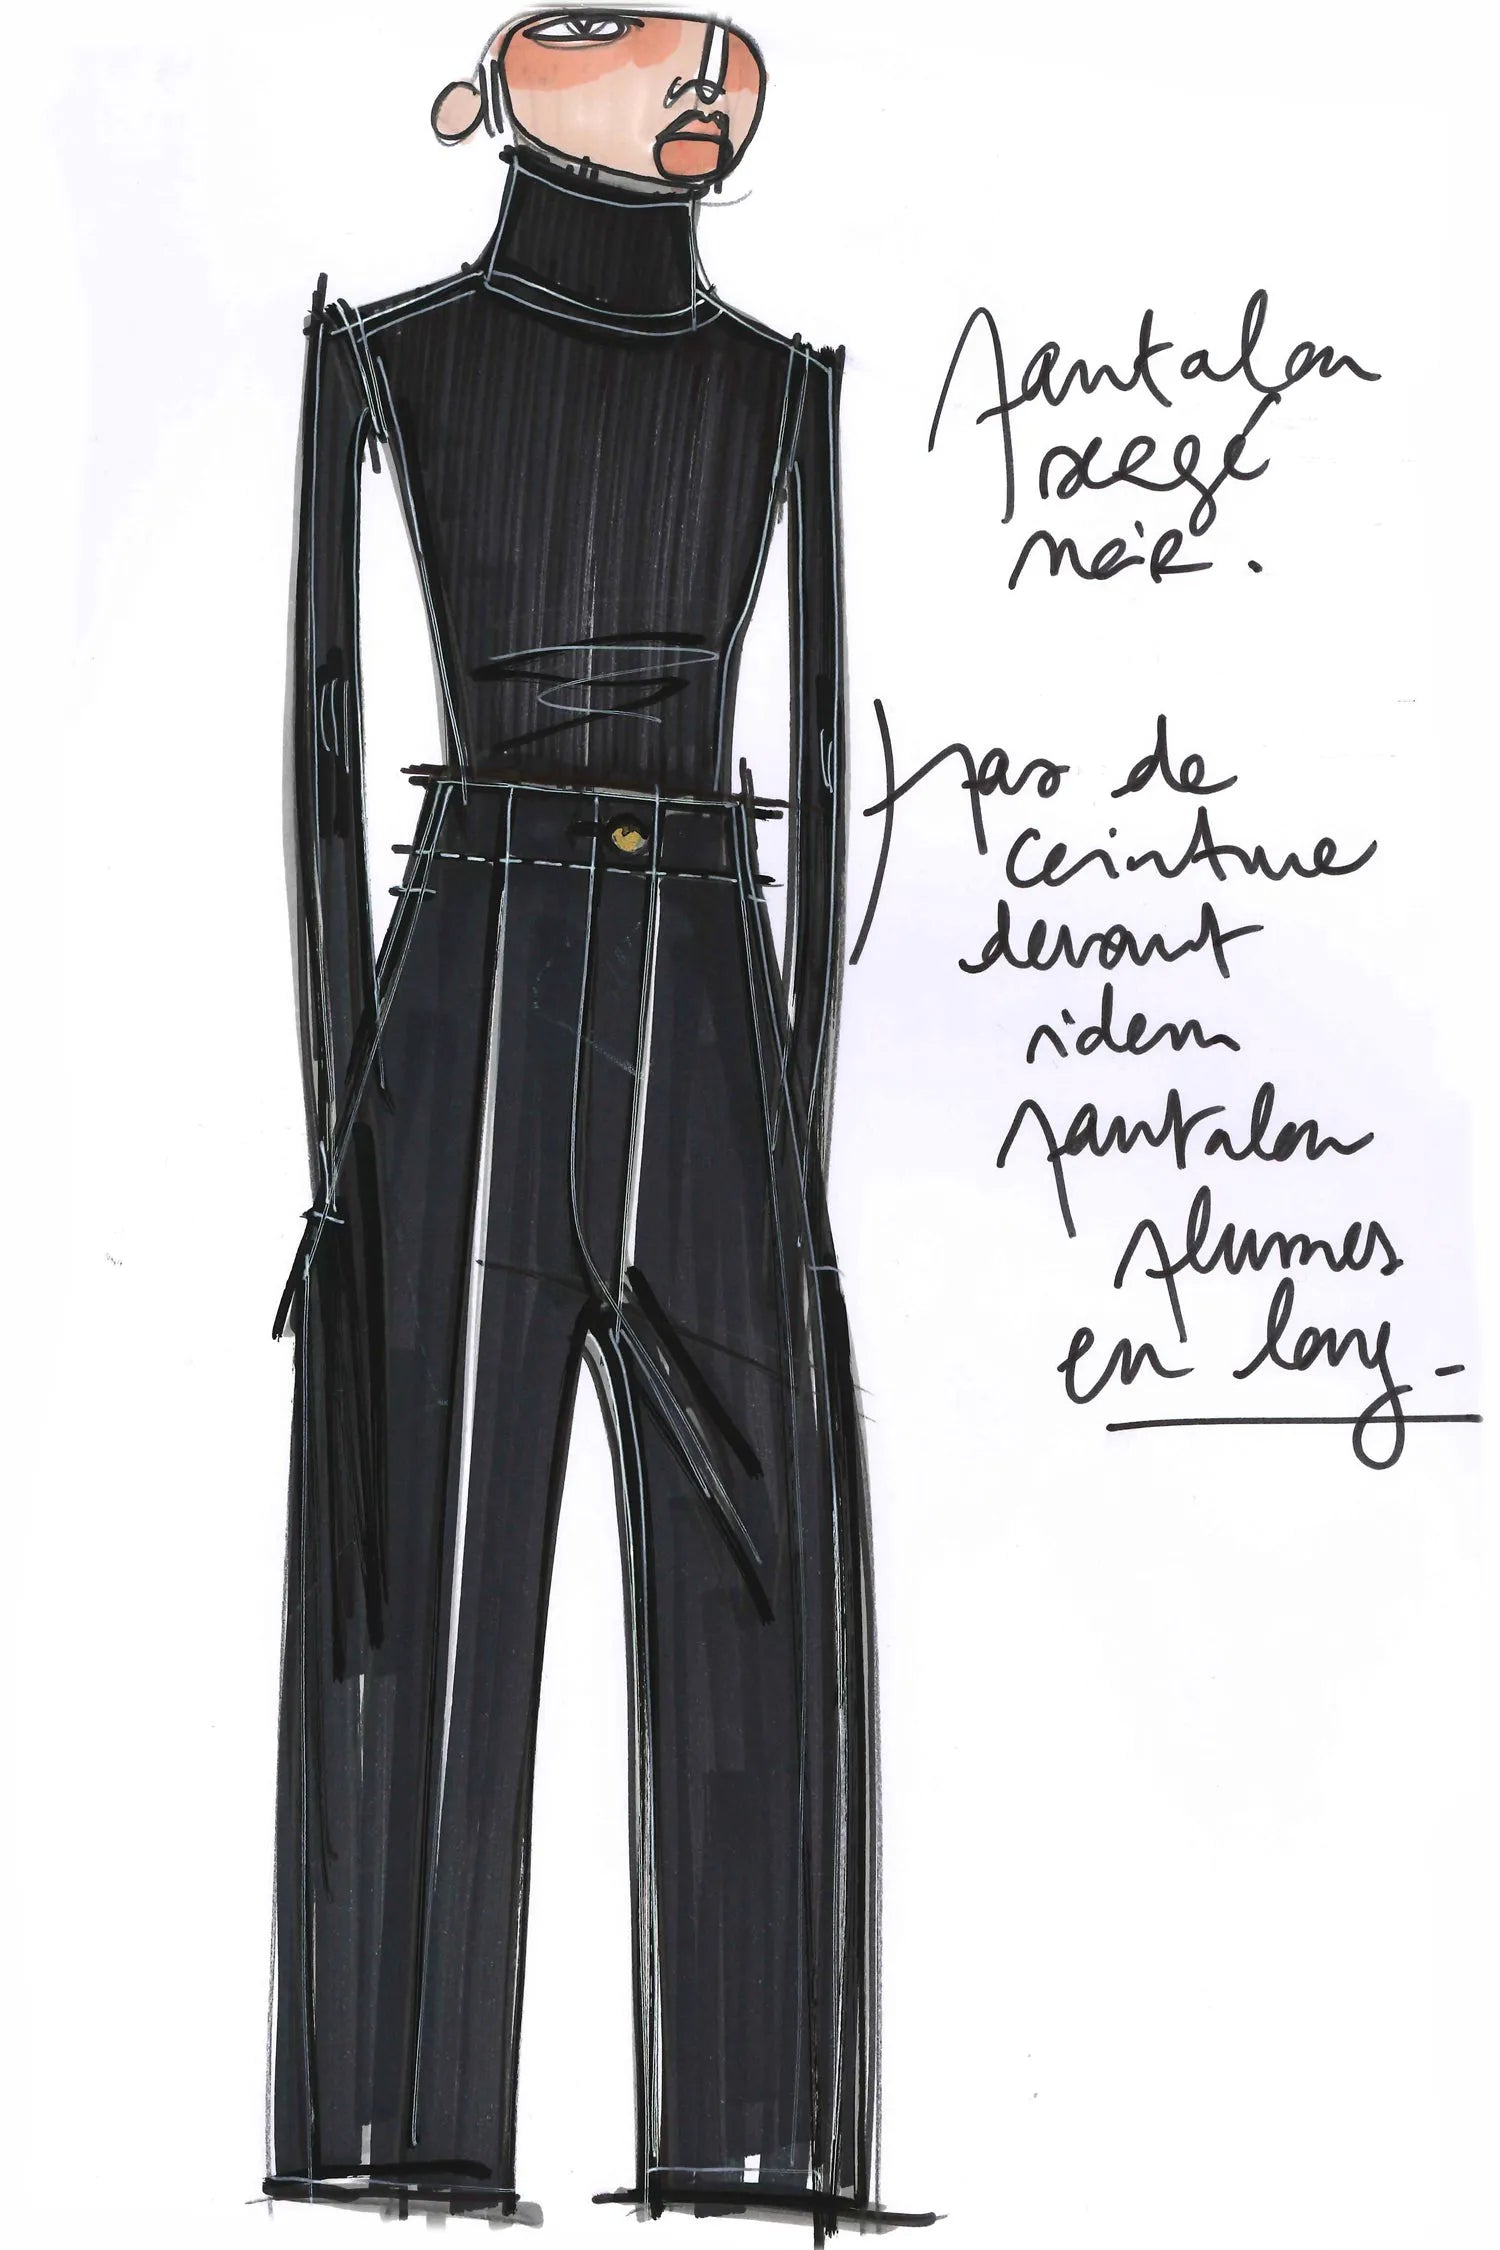 pantalon
noir.
pas de
ceinture
devant
idem
pantalon
plumes
en long -